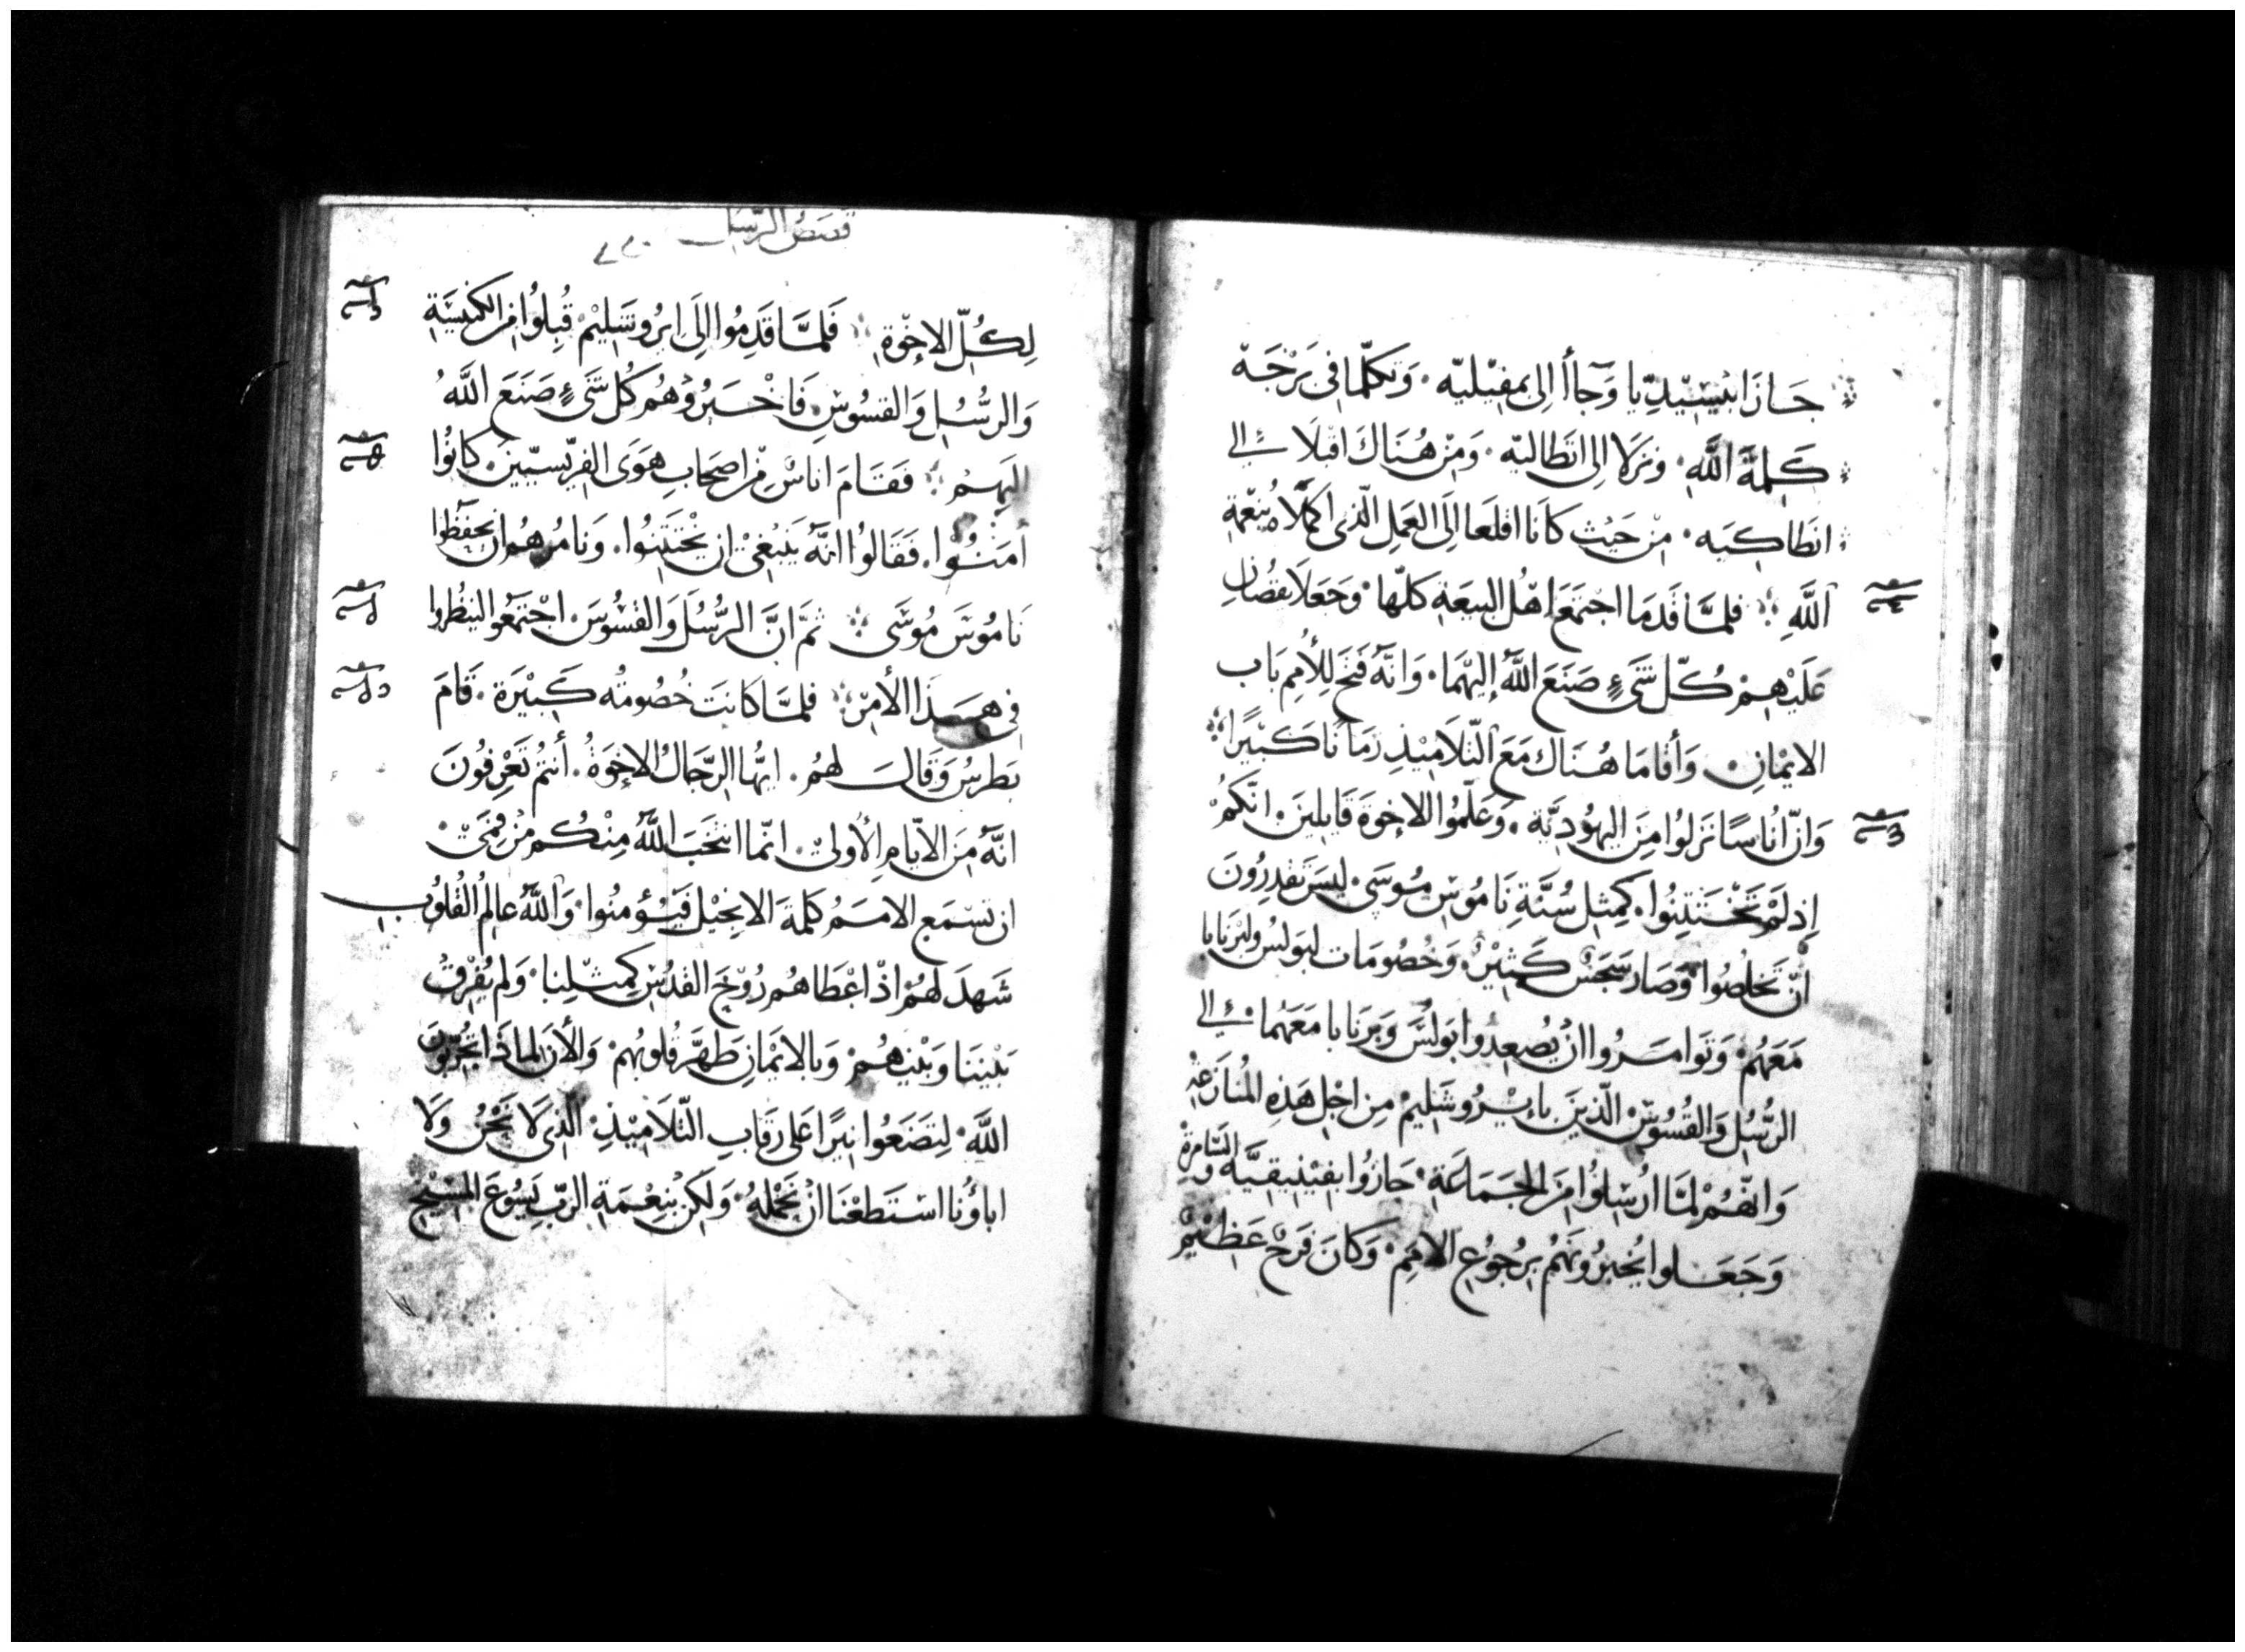 جَازَا ابْيسِيدِيّا وَجَاأ الِى بمفِيْليّه ۰ وَتَكلّما فى بَرْجَة
كَلمَةَ اللَّهِ ۰ ونزَلا الى انَطَاليّه ۰ وَمِنْ هُنَاكَ اقْبلَا الى
انطاكيه ۰ مِنْ حَيْث كَانَا اقلَعا الَى العَمَلِ الّذى اكْمَلَاه بنِعْمةِ
اللَّهِ فلمَّا قَدمَا اجْتمَعَ اهْل البيعَةِ كلّها ۰ وَجَعَلَا يقصُّانِ
عَلَيْهِمْ كُلّ شَىءٍ صَنَعَ اللَّهُ إِليْهمَا ۰ وَانّهُ فَتَح للِأُمِم بَاب
الايْمانِ ۰ وَأقامَا هُنَاك مَعَ التّلَامِيْذِ زمَانًا كَبْيرًا
وَانّ انُاسًا نَزلُوا مِنَ اليهُوديَّةِ ۰ وَعَلّمُوا الاخِوَة قَايلِينَ ۰ انّكمْ
اِذ لَمْ تَخْتَتِنُوا ۰ كَمِثلِ سُنَّةِ نَامُوسِ مُوسَى ۰ ليسَ تَقدِرُونَ
أنْ تَخلُصُوا وَصَار سَجَسٌ كَثِيْرٌ ۰ وَخُصُومَات لبَولسُ ولبَرنَابا
مَعَهُمْ ۰ وَتَوامَرُوا انْ يُصعِدُوا بَولُسَ وَبَرنَابا مَعَهُما الى
الرُّسُلِ وَالقُسُوْسِ الّذينَ بايْرُوشَلِيمْ مِن اجْلِ هَذِهِ المُنازَعَة
وَانّهُمْ لمَّا ارُسِلُوُا مِنَ الجمَاعَةِ ۰ جَازُوا بفِيْنِيقِيَّة وَالسَّامِرةْ
وَجَعَلوا يُخبِرُونَهمُ برجُوُعِ الامَمِ ۰ وَكانَ فَرَحٌ عَظِيْمٌ
قصَصُ الرّسُل
لِكُلِّ الاخِوْةِ فَلمَّا قَدِمُوا الِىَ ايرُوشَلِيْم قُبِلوُا مِن الكنِيسَةِ
وَالرسُّلِ وَالقسُوسِ فَاخْبَرُوْهُم كُل شَىءٍ صَنَعَ اللَّهُ
اليَهِمْ فَقَامَ اناسٌ مِن اصحَابِ هَوَى الفِرّيسيّينَ ۰ كانُوا
امَنُوا ۰ فَقَالوُا انَّهُ يَنبَغِىْ ان يَخْتَتِنُوا ۰ وَنامُرهُم ان يحفَظُوا
نَامُوسَ مُوسَى ثمّ انَّ الرُّسُلَ وَالقسُوسَ ۰ اجْتَمعُو الينظُروا
فى هَذَا الأمْرِ فلمَّا كَانتَ خُصُومتُه كَبيْرَة ۰ قامَ
بَطرسُ وَقَالَ لهمُ ۰ ايُّها الرّجَالُ الاخِوَةُ ۰ أنتمُ تَعْرِفوُنَ
انّهُ مِنَ الايّامِ الأُولىْ ۰ انّما انتخَبَ اللَّهُ مِنْكُم مِنْ فمِىْ ۰
ان تسْمَع الامَمُ كَلمَةَ الانِجيْل فيُؤمنُوا ۰ وَاللَّهُ عالِمُ القُلوُب
شَهدَ لَهُمْ اذْ اعْطَاهُم رُوْحَ القدُسِ كمِثلِنا ۰ وَلم يُفْرِقْ
بَيْننَا وَبَيْنهُمْ ۰ وَبالايْمانِ طَهَّرَ قُلوبُهم ۰ وَالأنَ لماذَا تُجَرّبُونَ
اللَّهَ ۰ لِتَضعَوُا نيرًا عَلى رقَابِ التّلَامِيْذِ ۰ الّذِى لا نَحْنُ وَلَا
اباؤُنا اسْتَطعْنَا انْ نَحْملهُ ۰ وَلكِنْ بنِعْمَةِ الرّبِّ يَسُوْعَ المَسِيْحِ